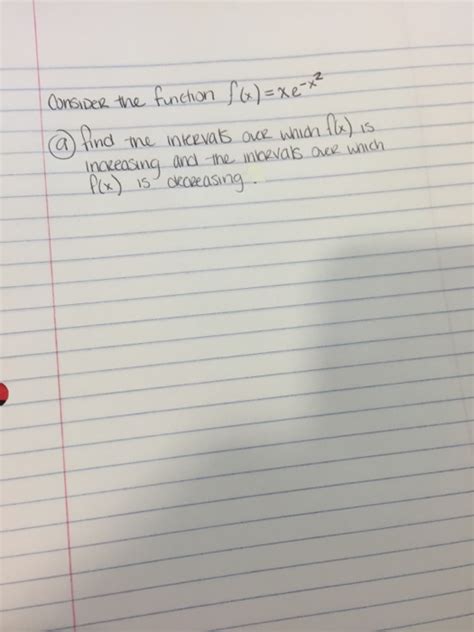 Consider the function f(x) = xe^-x²
(a) find the intervals over which f(x) is
increasing and the intervals over which
f(x) is decreasing.